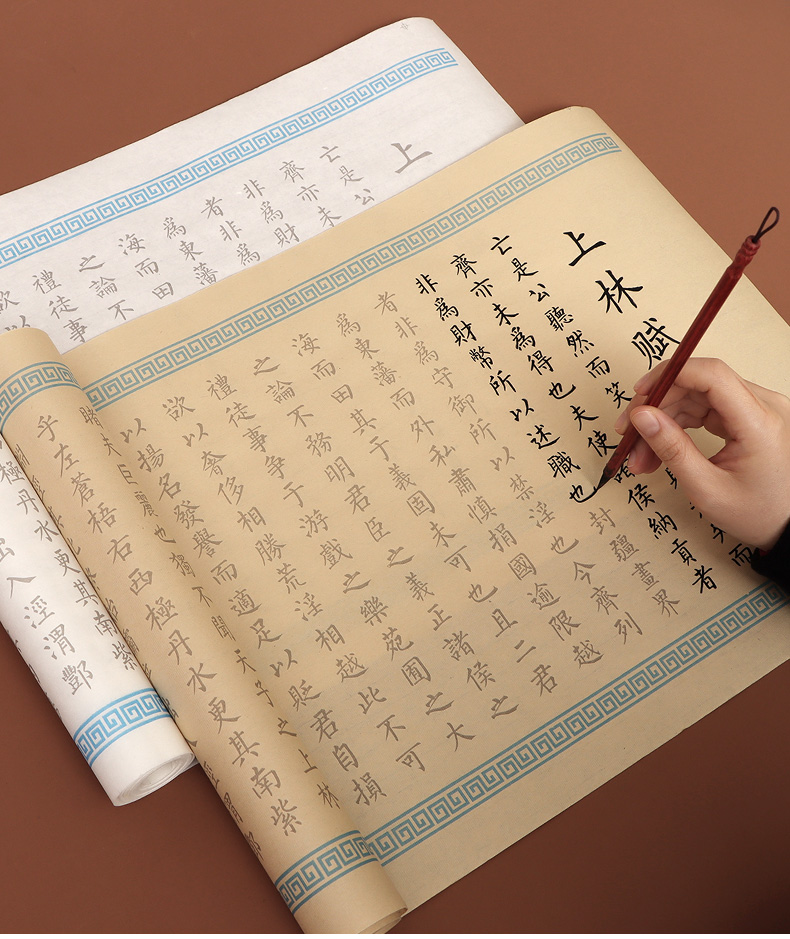 上林赋
亡是公聽然而笑
而
齊亦未為得也夫使
侯納貢者
非為財幣所以述職也封疆畫界
者非為守御所以禁淫也今齊列
為東藩而外私肅慎捐國逾限越
海而田其于義固未可也且二君
之論不務明君臣之義正諸侯之
禮徒事爭于游戲之樂苑囿之大
欲以奢侈相勝荒淫相越此不可
以揚名發譽而適足以貶君自損
天子之上林
乎左蒼梧右西極丹水更其南紫
上
亡是公
齊亦未
非為財
者非為
為東藩
海而田
之論不
禮徒事
欲以
極丹水更其南紫
出入涇渭酆